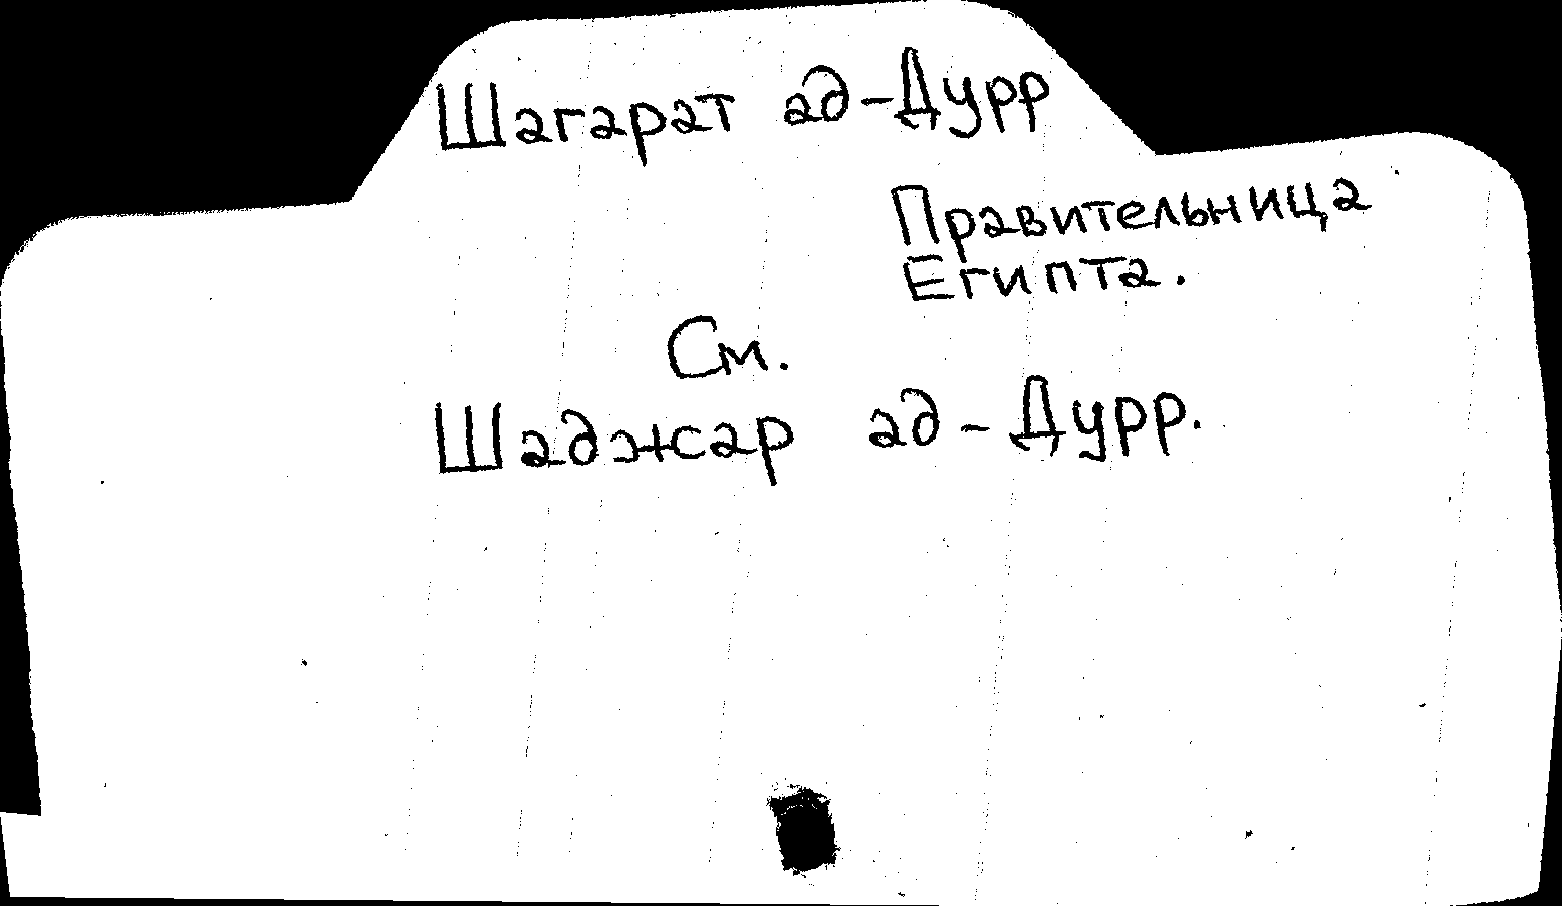 Шагарат ад-Дурр
Правительница
Египта.
См.
Шаджар ад-Дурр.